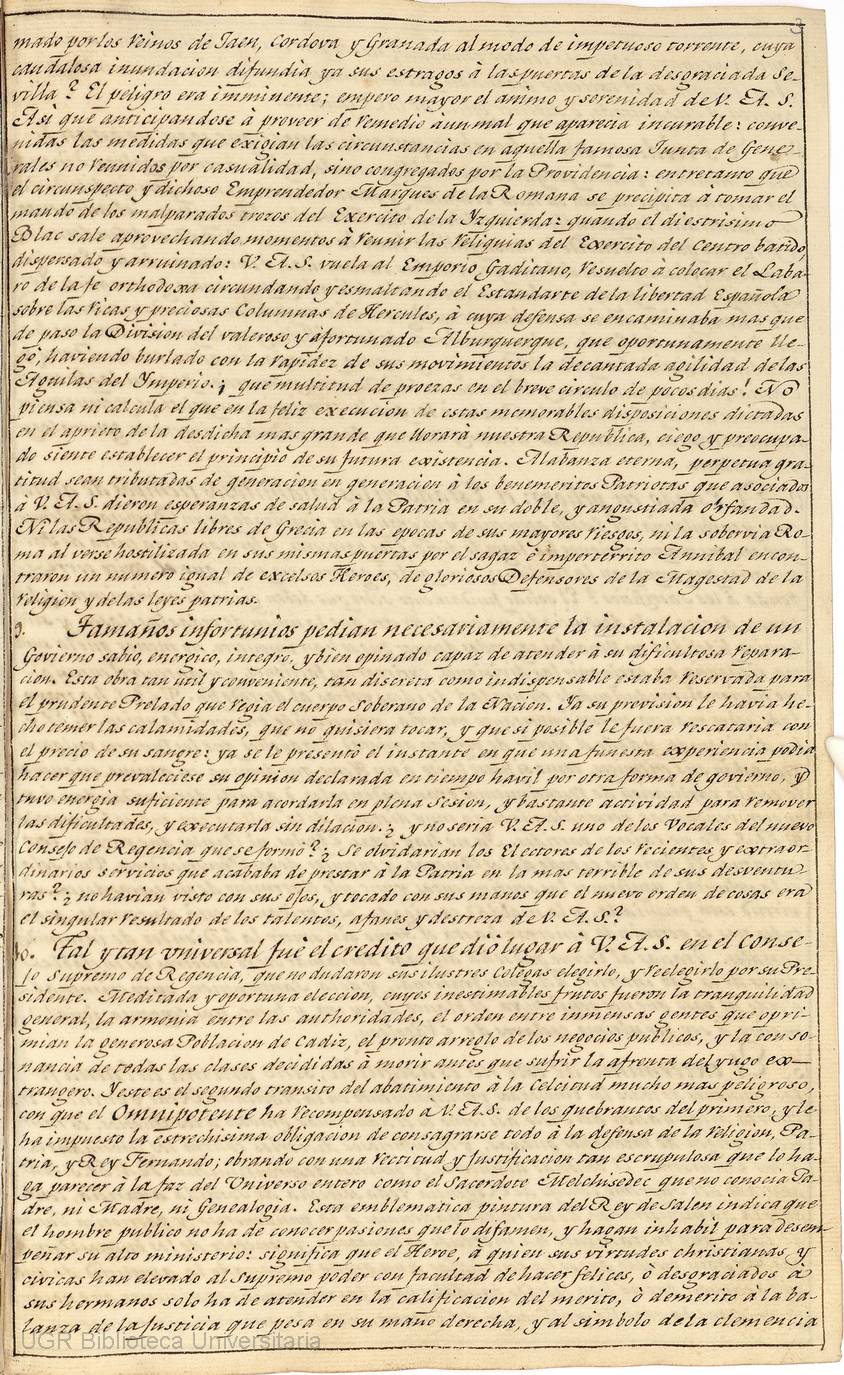 3
mado por los Reinos de Jaen, Cordova y Granada al modo de impetuoso torrente, cuya
caudalosa inundacion difundia ya sus estragos à las puertas de la desgraciada Se-
villa? El peligro era imminente; empero mayor el ánimo y serenidad de V. A. S.
Asi que anticipandose à proveer de remedio àun mal que aparecia incurable: conve-
nidas las medidas que exigian las circunstancias en aquella famosa Junta de Gene-
rales no reunidos por casualidad, sino congregados por la Providencia: entretanto que
el circunspecto y dichoso Emprendedor Marques de la Romana se precipita à tomar el
mando de los malparados trozos del Exercito de la Yzquierda: quando el diestrisimo
Blac sale aprovechando momentos à reunir las reliquias del Exercito del Centro batido,
dispersado y arruinado: V. A. S. vuela al Emporio Gaditano, resuelto à colocar el Laba-
ro de la fe orthodoxa circundando y esmaltando el Estandarte de la libertad Española
sobre las ricas y preciosas Columnas de Hercules, à cuya defensa se encaminaba mas que
de paso la Division del valeroso y afortunado Alburquerque, que oportunamente lle-
gò, haviendo burlado con la rapidez de sus movimientos la decantada agilidad de las
Aguilas del Ymperio. ¡ que multitud de proezas en el breve circulo de pocos dias! No
piensa ni calcula el que en la feliz execucion de estas memorables disposiciones dictadas
en el aprieto de la desdicha mas grande que llorarà nuestra Republica, ciego y preocupa-
do siente establecer el principio de su futura existencia. Alabanza eterna, perpetua gra-
titud sean tributadas de generacion en generacion à los benemeritos Patriotas que asociados
à V. A. S. dieron esperanzas de salud à la Patria en su doble, y angustiada orfandad.
Ni las Republicas libres de Grecia en las epocas de sus mayores riesgos, ni la sobervia Ro-
ma al verse hostilizada en sus mismas puertas por el sagaz è imperterrito Annibal encon-
traron un numero igual de excelsos Heroes, de gloriosos Defensores de la Magestad de la
religion y de las leyes patrias.
9. Tamaños infortunios pedian necesariamente la instalacion de un
Govierno sabio, energico, integro, y bien opinado capaz de atender à su dificultosa repara-
cion. Esta obra tan util y conveniente, tan discreta como indispensable estaba reservada para
el prudente Prelado que regia el cuerpo Soberano de la Nacion. Ya su prevision le havia he-
cho temer las calamidades, que no quisiera tocar, y que si posible le fuera rescataria con
el precio de su sangre: ya se le presentò el instante en que una funesta experiencia podia
hacer que prevaleciese su opinion declarada en tiempo havil por otra forma de govierno, y
tuvo energia suficiente para acordarla en plena Sesion, y bastante actividad para remover
las dificultades, y executarla sin dilacion. ¿ y no seria V. A. S. uno de los Vocales del nuevo
Consejo de Regencia que se formò? ¿ Se olvidarian los Electores de los recientes y extraor-
dinarios servicios que acababa de prestar à la Patria en la mas terrible de sus desventu-
ras? ¿ no havian visto con sus ojos, y tocado con sus manos que el nuevo orden de cosas era
el singular resultado de los talentos, afanes y destreza de V. A. S.?
10. Tal y tan vniversal fuè el credito que diò lugar à V. A. S. en el Conse-
jo Supremo de Regencia, que no dudaron sus ilustres Colegas elegirlo, y reelegirlo por su Pre-
sidente. Meditada y oportuna eleccion, cuyos inestimables frutos fueron la tranquilidad
general, la armonia entre las authoridades, el orden entre inmensas gentes que opri-
mian la generosa Poblacion de Cadiz, el pronto arreglo de los negocios publicos, y la conso-
nancia de todas las clases decididas à morir antes que sufrir la afrenta del yugo ex-
trangero. Y este es el segundo transito del abatimiento à la Celcitud mucho mas peligroso,
con que el Omnipotente ha recompensado à V. A. S. de los quebrantos del primero, y le
ha impuesto la estrechisima obligacion de consagrarse todo à la defensa de la religion, Pa-
tria, y Rey Fernando; obrando con una rectitud y justificacion tan escrupulosa que lo ha-
ga parecer à la faz del Universo entero como el Sacerdote Melchisedec que no conocia Pa-
dre, ni Madre, ni Genealogia. Esta emblematica pintura del Rey de Salen indica que
el hombre publico no ha de conocer pasiones que lo difamen, y hagan inhabil para desem-
peñar su alto ministerio: significa que el Heroe, à quien sus virtudes christianas y
civicas han elevado al Supremo poder con facultad de hacer felices, ò desgraciados à
sus hermanos solo ha de atender en la calificacion del merito, ò demerito à la ba-
lanza de la Justicia que pesa en su mano derecha, y al simbolo de la clemencia
UGR Biblioteca Universitaria